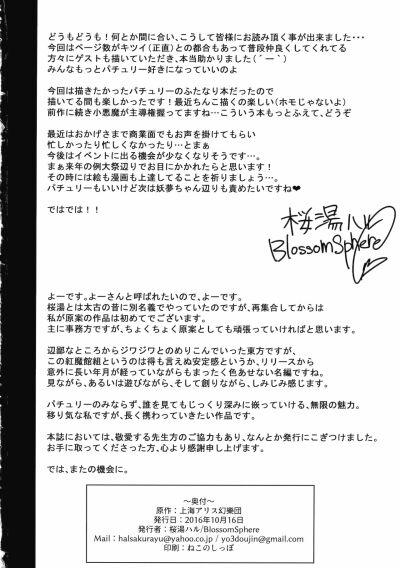 どうもどうも！何とか間に合い、こうして皆様にお読み頂く事が出来ました・・・
今回はページ数がキツイ(正直)との都合もあって普段仲良くしてくれてる
方々にゲストも描いていただき、本当助かりました(´ー`)
みんなもっとパチュリー好きになっていいのよ
今回は描きたかったパチュリーのふたなり本だったので
描いてる間も楽しかったです！最近ちんこ描くの楽しい(ホモじゃないよ)
前作に続き小悪魔が主導権握ってますね…こういう本もっとふえて、どうぞ
最近はおかげさまで商業面でもお声を掛けてもらい
忙しかったり忙しくなかったり…とまぁ
今後はイベントに出る機会が少なくなりそうです…。
まぁ来年の例大祭辺りでお目にかかれたらと思います！
その時には絵も漫画も上達してることを祈りましょう…。
パチュリーもいいけど次は妖夢ちゃん辺りも責めたいですね❤
ではでは！！
桜湯ハル
BlossomSphere
よーです。よーさんと呼ばれたいので、よーです。
桜湯とは太古の昔に別名義でやっていたのですが、再集合してからは
私が原案の作品は初めてでございます。
主に事務方ですが、ちょくちょく原案としても頑張っていければと思います。
辺鄙なところからジワジワとのめりこんでいった東方ですが、
この紅魔館組というのは得も言えぬ安定感というか、リリースから
意外に長い年月が経っていながらもまったく色あせない名編ですね。
見ながら、あるいは遊びながら、そして創りながら、しみじみ感じます。
パチュリーのみならず、誰を見てもじっくり深みに嵌っていける、無限の魅力。
移り気な私ですが、長く携わっていきたい作品です。
本誌においては、敬愛する先生方のご協力もあり、なんとか発行にこぎつけました。
お手に取ってくださった方、心より感謝申し上げます。
では、またの機会に。
～奥付～
原作：上海アリス幻樂団
発行日：2016年10月16日
発行者：桜湯ハル/BlossomSphere
Mail：halsakurayu@yahoo.co.jp / yo3doujin@gmail.com
印刷：ねこのしっぽ